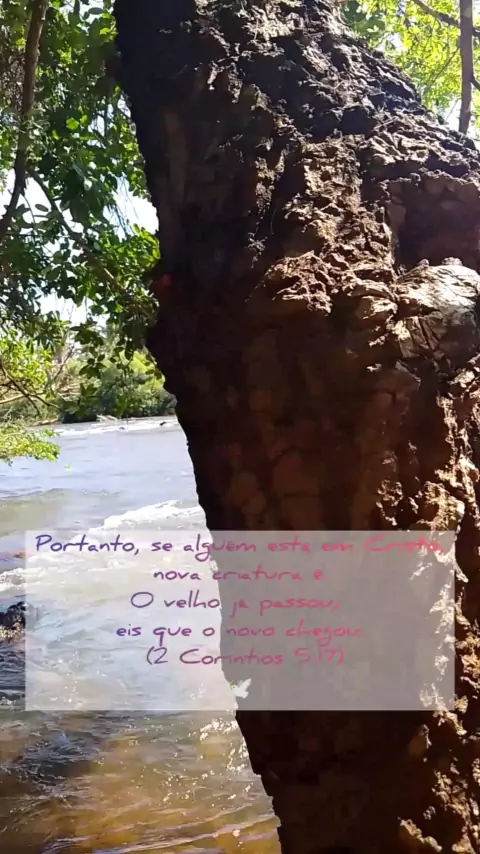 Portanto, se alguém está em Cristo,
nova criatura é
O velho já passou,
eis que o novo chegou.
(2 Coríntios 5.17)